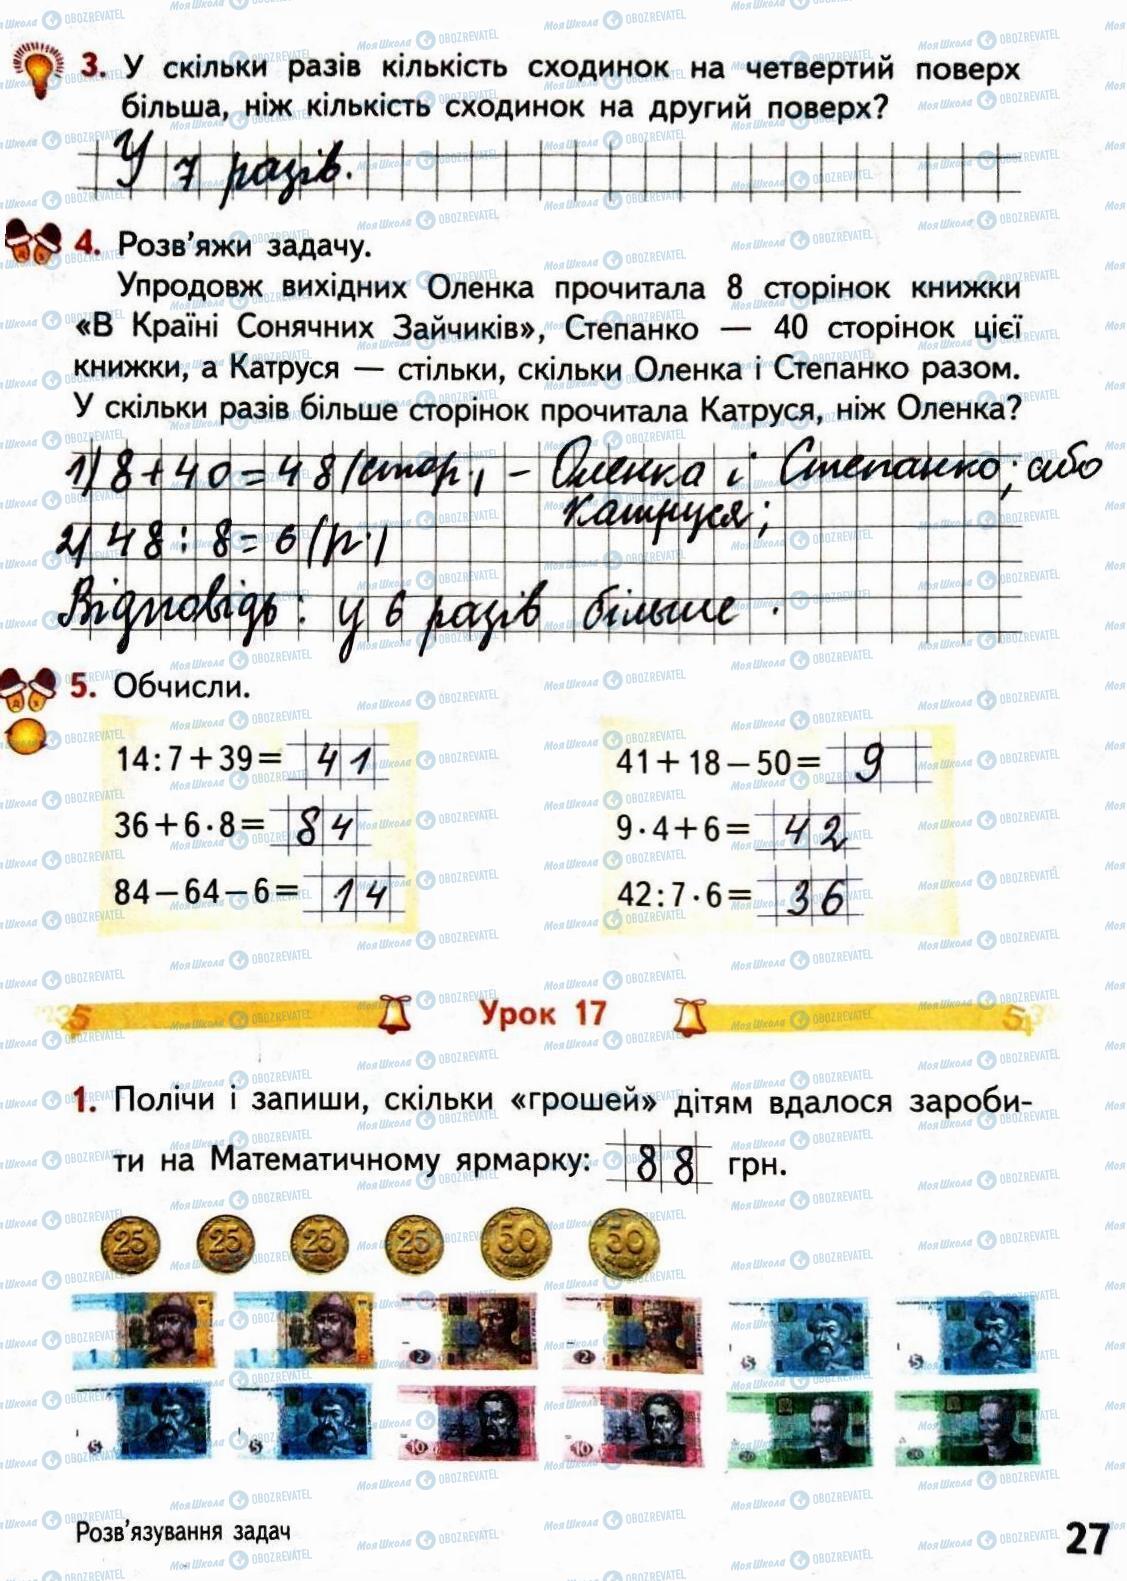 3. У скільки разів кількість сходинок на четвертий поверх
більша, ніж кількість сходинок на другий поверх?
У 7 разів.
4. Розв'яжи задачу.
Упродовж вихідних Оленка прочитала 8 сторінок книжки
«В Країні Сонячних Зайчиків», Степанко — 40 сторінок цієї
книжки, а Катруся — стільки, скільки Оленка і Степанко разом.
У скільки разів більше сторінок прочитала Катруся, ніж Оленка?
1) 8+40=48 (стор.) - Оленка і Степанко; або
Катруся;
2) 48:8=6 (р.)
Відповідь: у 6 разів більше.
5. Обчисли.
14:7+39= 41
41+18−50= 9
36+6·8= 84
9·4+6= 42
84−64−6= 14
42:7·6= 36
Урок 17
1. Полічи і запиши, скільки «грошей» дітям вдалося зароби-
ти на Математичному ярмарку: 88 грн.
25 25 25 25 50 50
1 1 2 2 5 5
5 5 10 10 20 20
Розв'язування задач
27
МояШкола OBOZREVATEL